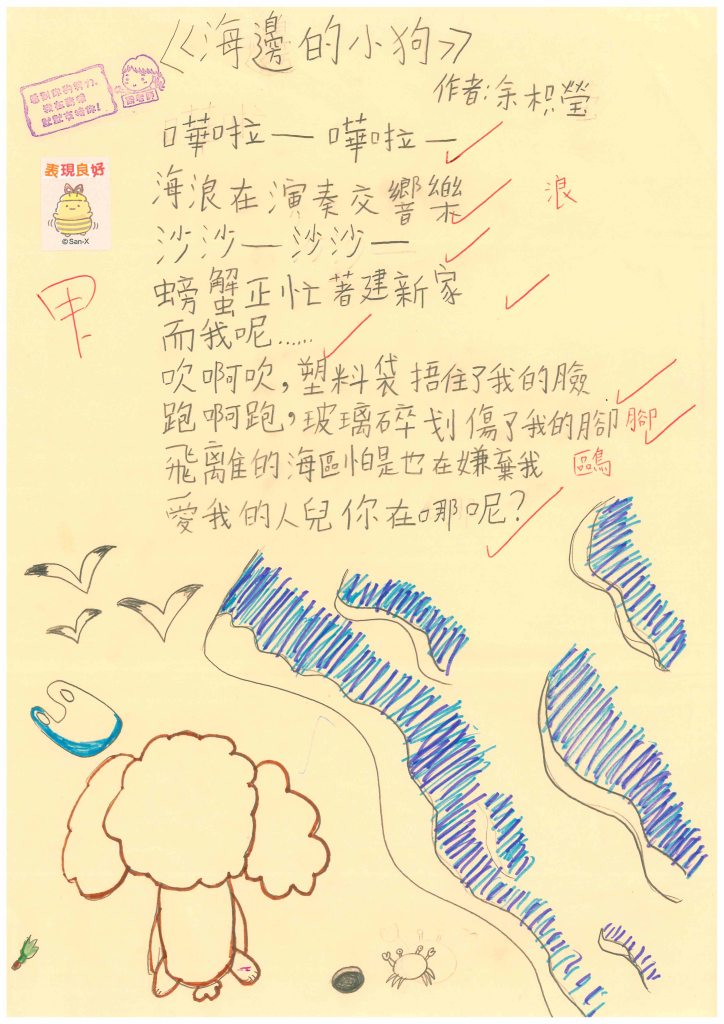 《海邊的小狗》
作者:余枳瑩
嘩啦一 嘩啦一
海浪在演奏交響樂 浪
沙沙一 沙沙一
螃蟹正忙著建新家
而我呢……
吹啊吹,塑料袋捂住了我的臉
跑啊跑,玻璃碎划傷了我的腳 腳
飛離的海區怕是也在嫌棄我 鷗
愛我的人兒你在哪呢?
表現良好
© San-X
甲